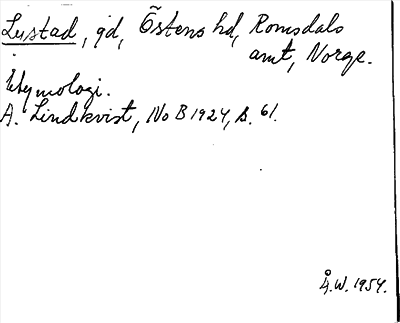 Lustad, gd, Östens hd, Romsdals
amt, Norge.
Etymologi.
A. Lindkvist, No B 1924, s. 61.
Å.W. 1954.